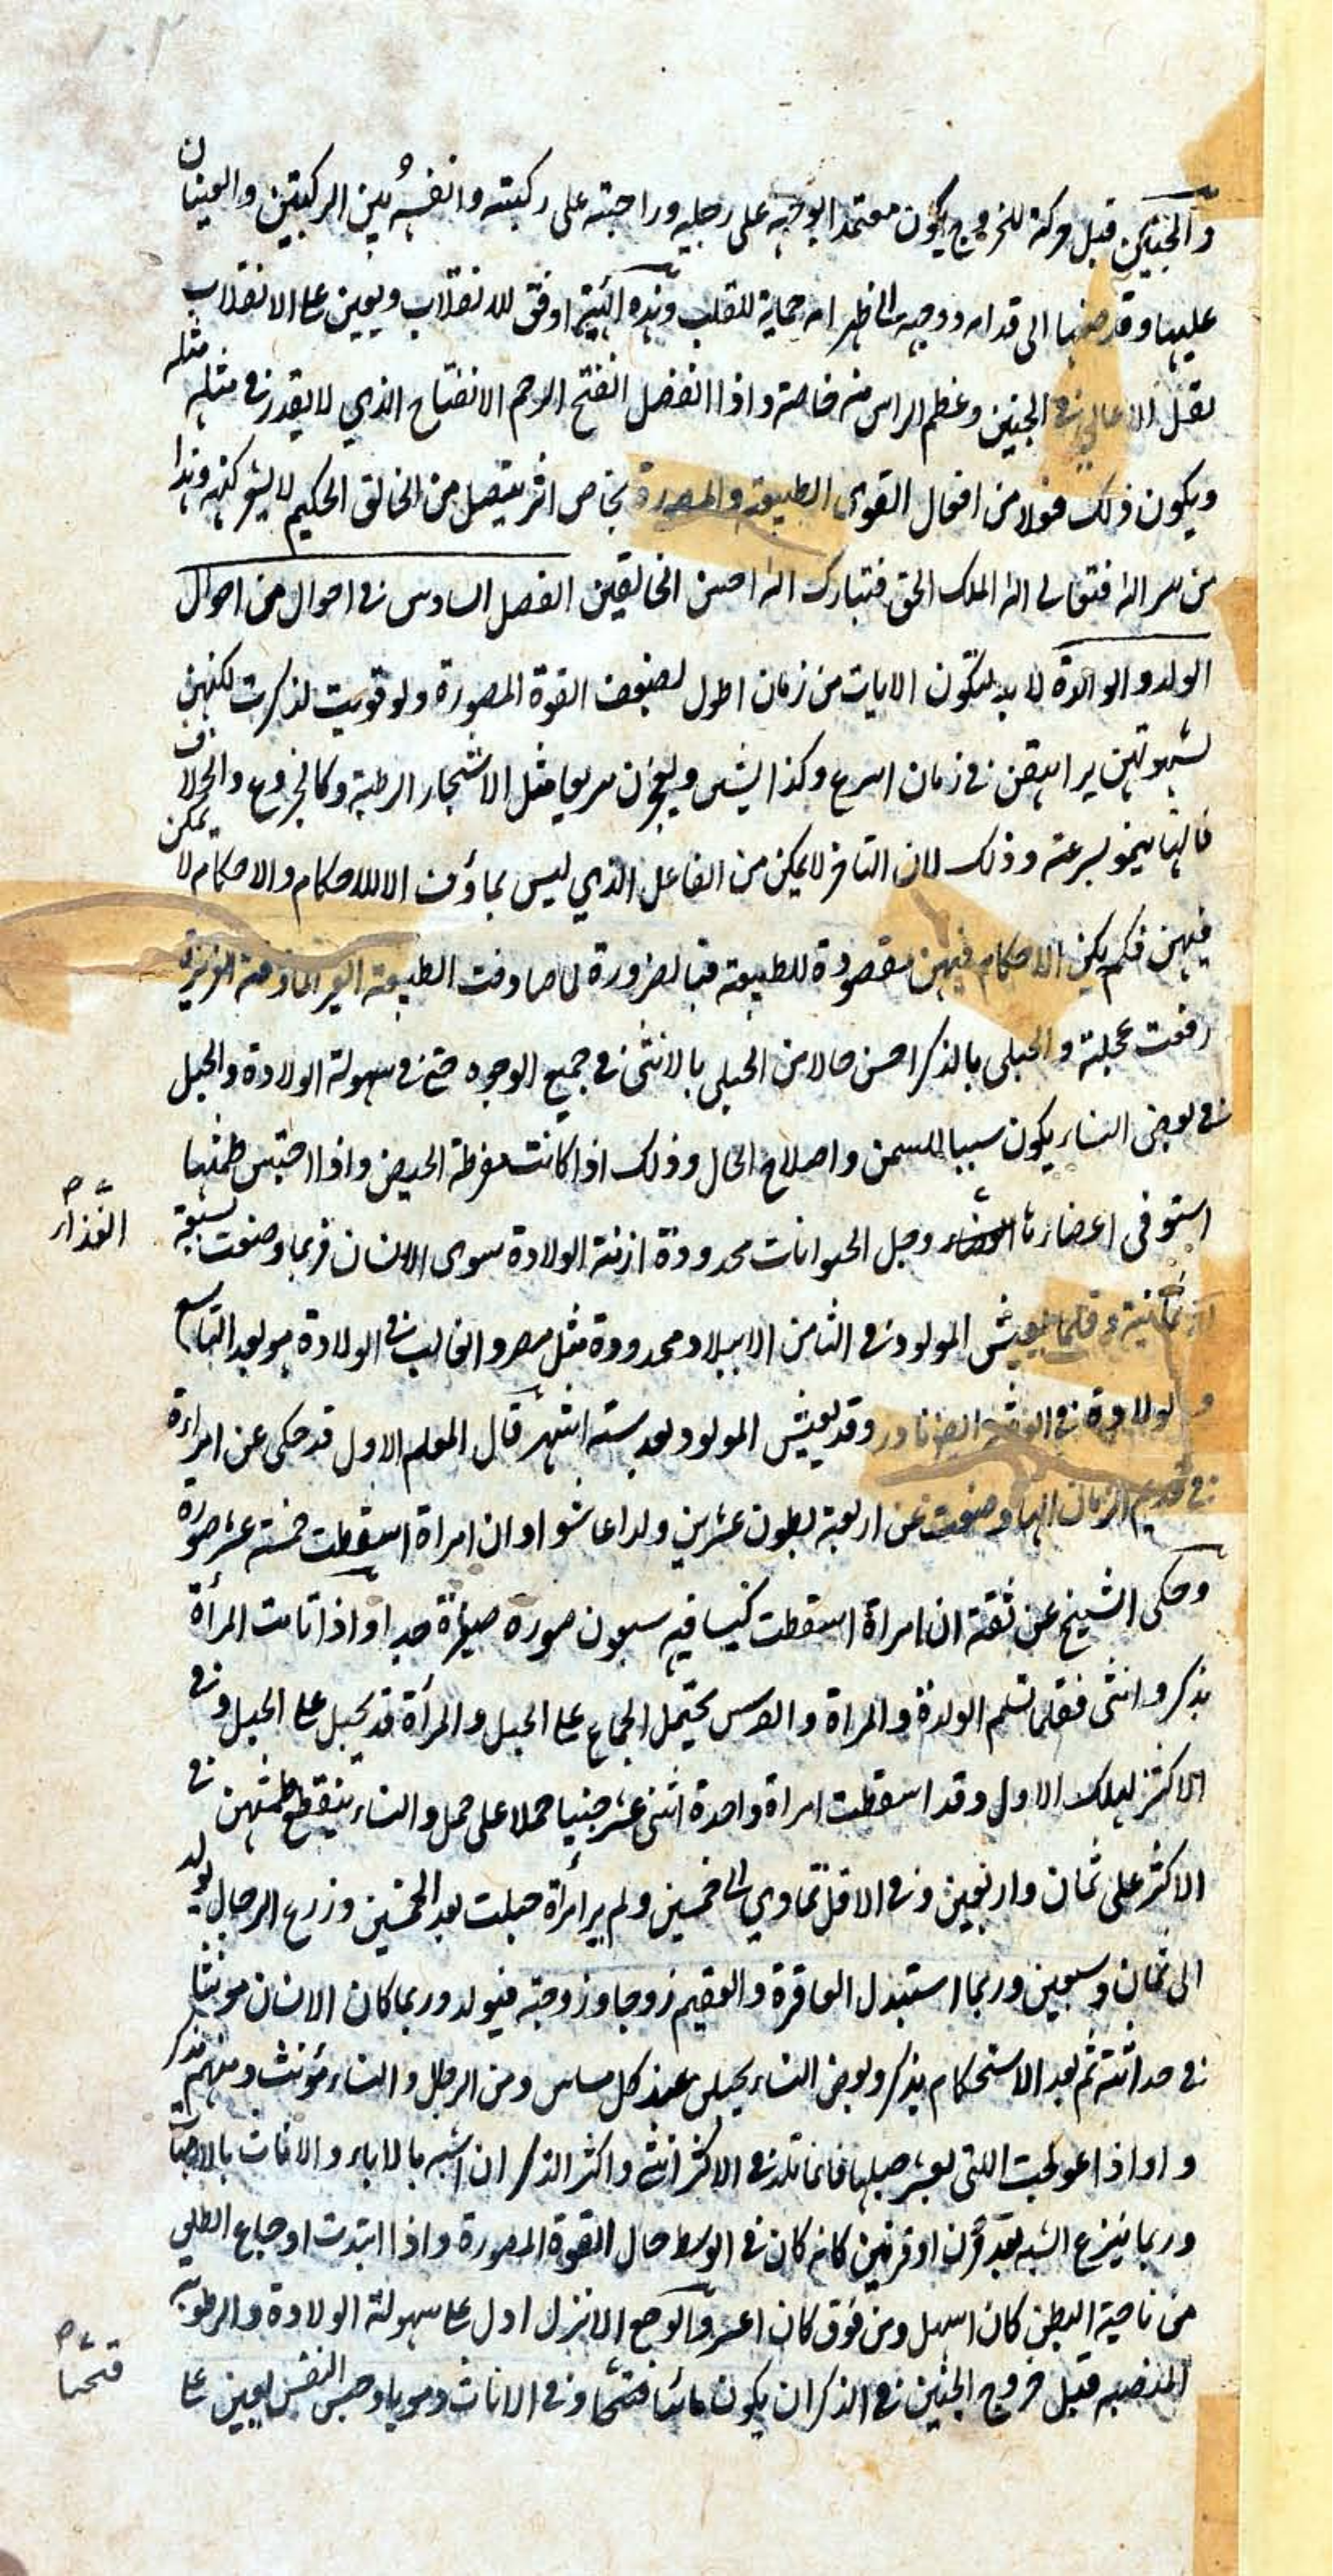 ١٠٢
والجنين قبل حركته للخروج يكون معتمدا بوجهه على رجليه وراحتيه على ركبتيه وانفسه بين الركبتين والعينان
عليهما وقد ضمهما الى قدامه ووجهه الى ظهر امه حماية للقلب وهذه الهيئة اوفق للانقلاب ويعين على الانقلاب
ثقل الاعالي في الجنين وعظم الراس منه خاصة واذا انفصل انفتح الرحم الانفتاح الذي لا يقدر في مثله مثله
ويكون ذلك فعلا من افعال القوى الطبيعية والمصورة بخاص اثر يتصل من الخالق الحكيم لا يشعر كنهه وهذا
من سر الله فتعالى الله الملك الحق فتبارك الله احسن الخالقين الفصل السادس في احوال من احوال
الولد والوالدة لا بد لتكون الاناث من زمان اطول لضعف القوة المصورة ولو قويت لذكرت لكنهن
لشهوتهن يراهقن في زمان اسرع وكذا يشبن ويعجزن سريعا مثل الاشجار الرطبة وكالخروع والخلاف
فانها ينمو بسرعة وذلك لان التاخر لا يمكن من الفاعل الذي ليس بماؤف الا للاحكام والاحكام لا يمكن
فيهن فلم يكن الاحكام فيهن مقصودة للطبيعة فبالضرورة لما صادفت الطبيعة الغير الماؤفة الغريزية
رفعت عجلة والحبلى بالذكر احسن حالا من الحبلى بالانثى في جميع الوجوه حتى في سهولة الولادة والحبل
في بعض النساء يكون سببا للسمن واصلاح الحال وذلك اذا كانت مفرطة الحيض واذا احتبس طمثها
استوفى اعضاءها وجل الحيوانات محدودة ازمنة الولادة سوى الانسان فربما وضعت لسبعة
الغذاء صح
او ثمانية وقلما يعيش المولود في الثامن الا ببلاد محدودة مثل مصر والغالب في الولادة هو بعد التاسع
والولادة في نادر وقد يعيش المولود بعد ستة اشهر قال المعلم الاول قد حكى عن امراءة
في قديم الزمان انها وضعت عن اربعة بطون عشرين ولدا عاشوا وان امراة اسقطت خمسة عشر صورة
وحكى الشيخ عن ثقة ان امراة اسقطت كيسا فيه سبعون صورة صغيرة جدا واذا تامت المرأة
بذكر وانثى فقلما تسلم الولدة والمراة والفرس يحتمل الجماع على الحبل والمرأة قد تحبل على الحبل وفي
الاكثر يهلك الاول وقد اسقطت امراة واحدة اثنى عشر جنينا حملا على حمل والنساء ينقطع طمثهن في
الاكثر على ثمان واربعين وفي الاقل تماوي الى خمسين ولم ير امرأة حبلت بعد الخمسين وزرع الرجال يولد
الى ثمان وسبعين وربما استبدل العاقرة والعقيم زوجا وزوجة فيولد وربما كان الانسان مونثا
في حداثته ثم بعد الاستحكام يذكر وبعض النساء يحبلن عند كل مساس ومن الرجل والنساء مؤنث ومنهم مذكر
واو اذا عولجت اللتي يعسر حبلها فانما تلد في الاكثر انثى واكثر الذكران اشبه بالاباء والاناث بالامهات
وربما ينزع الشبه بعد قرن او قرنين كانه كان في الوسط حال القوة المصورة واذا ابتدت اوجاع الطلق
من ناحية البطن كان اسهل ومن فوق كان اعسر والوجع الانزل ادل على سهولة الولادة والرطوبة
المنصبة قبل خروج الجنين في الذكران يكون مائيا قتحيا وفي الاناث دمويا وحبس النفس يعين على
قتحيا صح